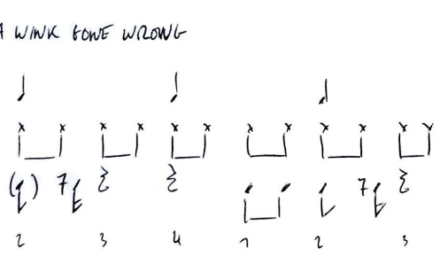 A WINK GONE WRONG
2 3 4 1 2 3